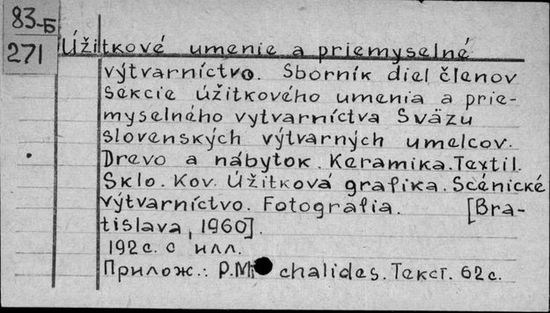 83-Б
271
Úžitkové umenie a priemyselné
výtvarníctvo. Sborník diel členov
sekcie úžitkového umenia a prie-
myselného vytvarníctva Sväzu
slovenských výtvarných umelcov.
Drevo a nábytok. Keramika. Textil.
Sklo. Kov. Úžitková grafika. Scénické
výtvarníctvo. Fotografia. [Bra-
tislava, 1960].
192 с. с илл.
Прилож.: P. Michalides. Текст. 62 с.